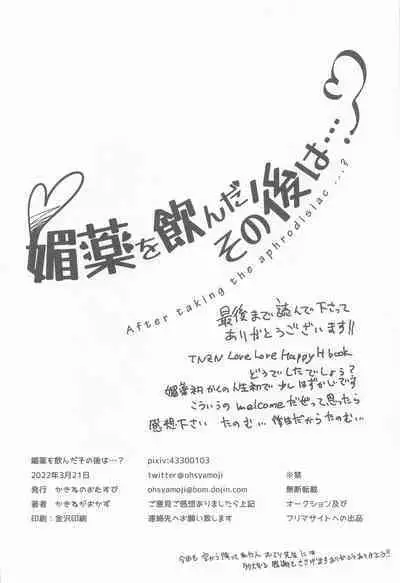 媚薬を飲んだその後は…?
After taking the aphrodisiac...?
最後まで読んで下さって
ありがとうございます!!
TNZN Love Love Happy H book
どうでしたでしょう?
媚薬ネタかくの人生初で少しはずかしいです
こういうの welcome だぜって思ったら
感想下さい たのむ… 後生だからたのむ…
媚薬を飲んだその後は…?
2022年3月21日
発行 かきねのおたすび
著者 かきねがおかず
印刷:金沢印刷
pixiv:43300103
twitter@ohsyamoji
ohsyamoji@bom.dojin.com
ご意見ご感想ありましたら上記
連絡先へお願い致します
※禁
無断転載
オークション及び
フリマサイトへの出品